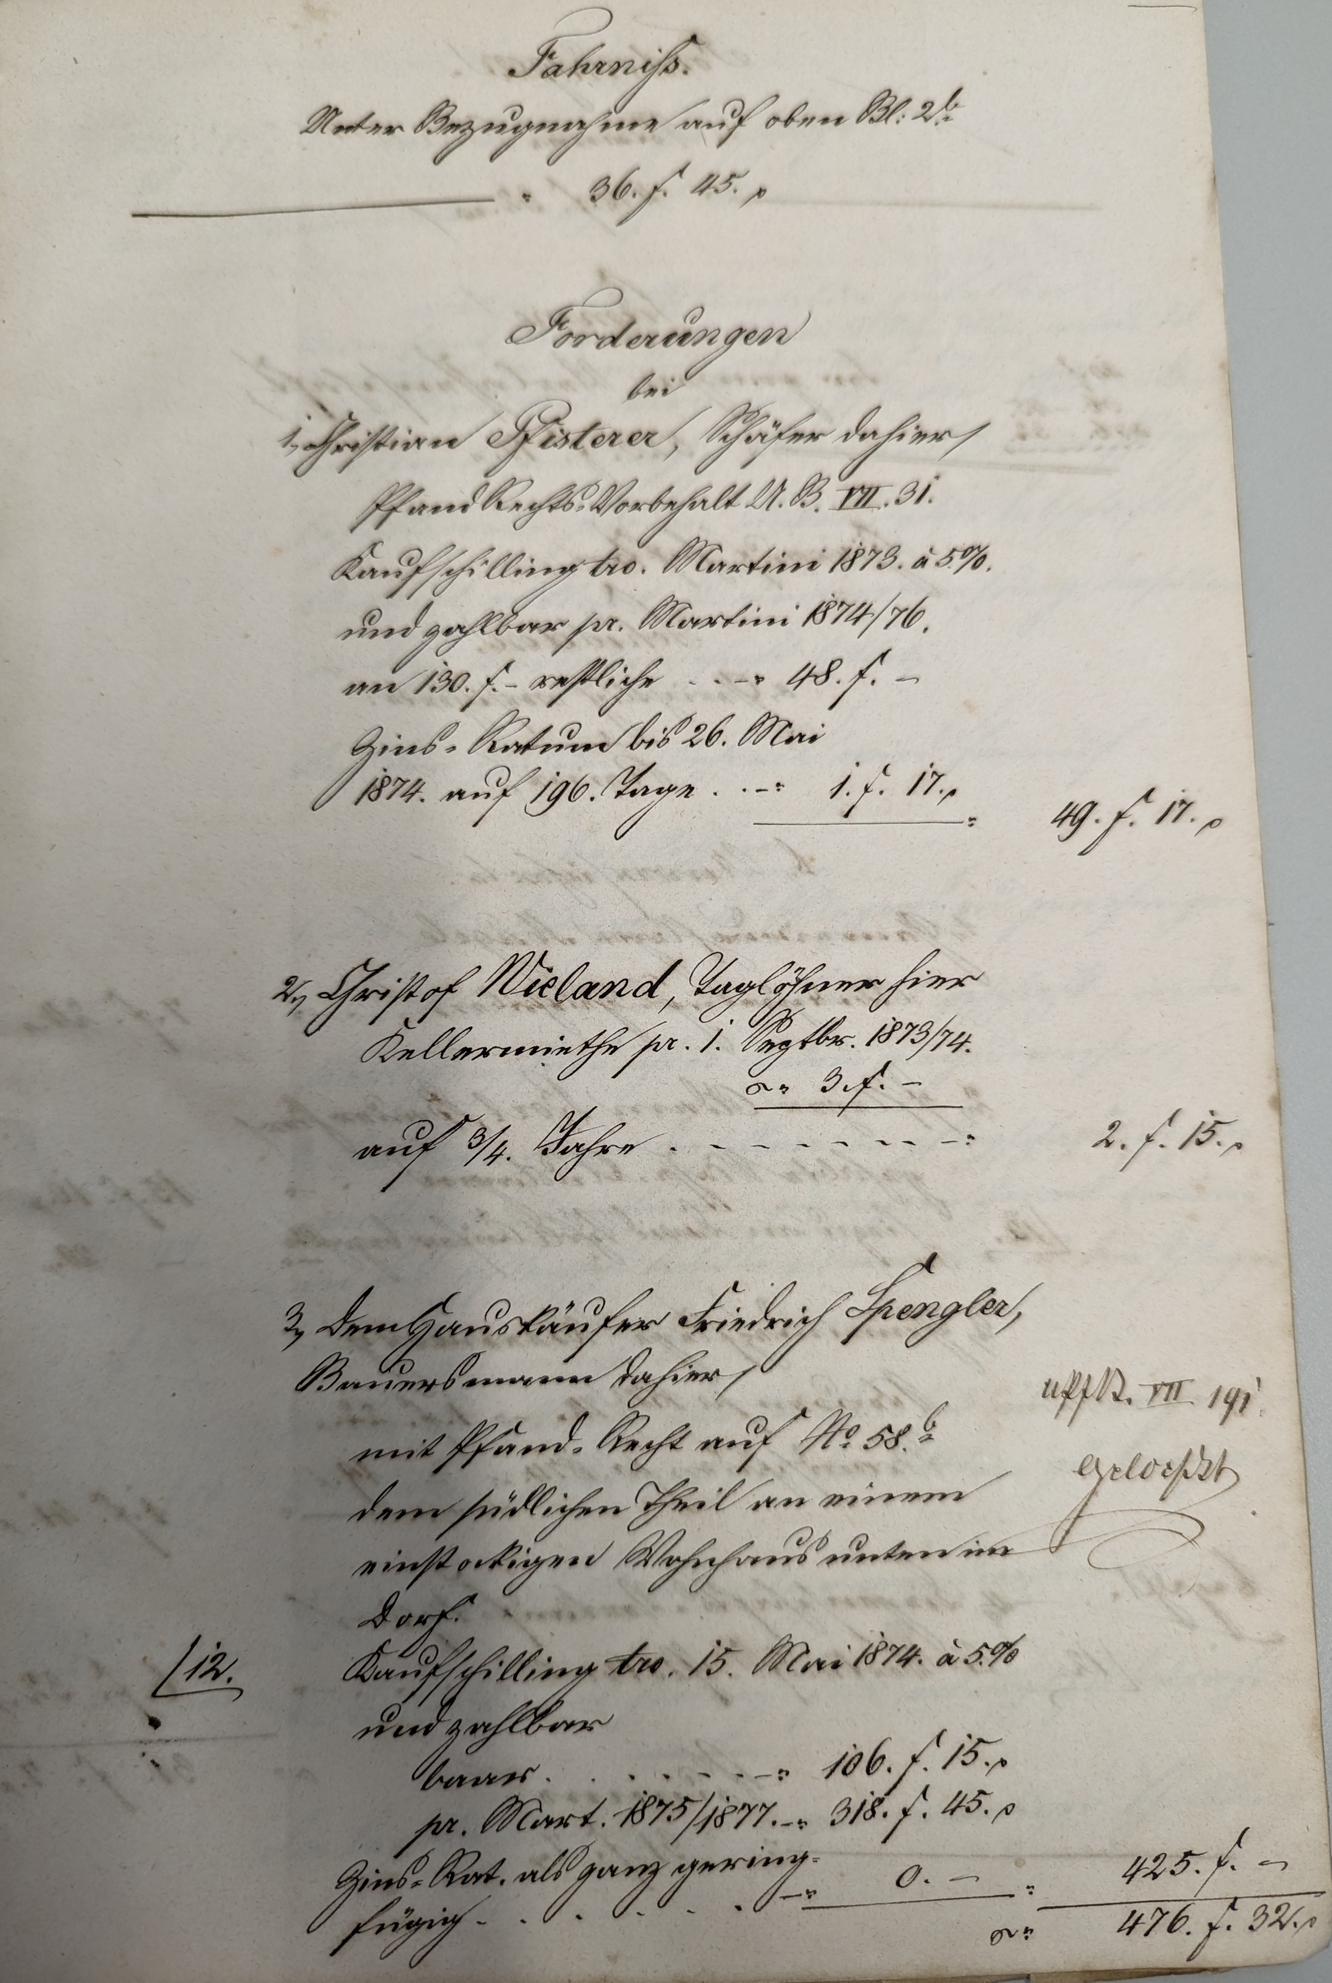 Fahrniß.
Unter Bezugnahme auf oben Bl: 2b.
" 36. f. 45. x
Forderungen
bei
1, Christian Pfisterer, Schäfer dahier,
Pfand Rechts-Vorbehalt U. B. VII. 31.
Kaufschilling tro. Martini 1873. à 5.%.
und zahlbar pr. Martini 1874/76.
an 130. f. – restliche . . –" 48. f. –
Zins-Ratum bis 26. Mai
1874. auf 196. Tage . . –" 1. f. 17. x
" 49. f. 17. x
2, Christof Wieland, Taglöhner hier
Kellermiethe pr. 1. Septbr. 1873/74.
" 3. f. –
auf 3/4. Jahre . – – – – – – –" 2. f. 15. x
3, dem Hauskäufer Friedrich Spengler,
Bauersmann dahier,
mit Pfand-Recht auf No 58.b
dem südlichen Theil an einem
einstockigen Wohnhaus unten im
Dorf.
VII. 191.
geloescht
/12.
Kaufschilling tro. 15. Mai 1874. à 5.%
und zahlbar
baar . . . . . . –" 106. f. 15. x
pr. Mart. 1875/1877. –" 318. f. 45. x
Zins-Rat. als ganz gering-
fügig – . . . . . –" 0. – " 425. f. –
" 476. f. 32. x